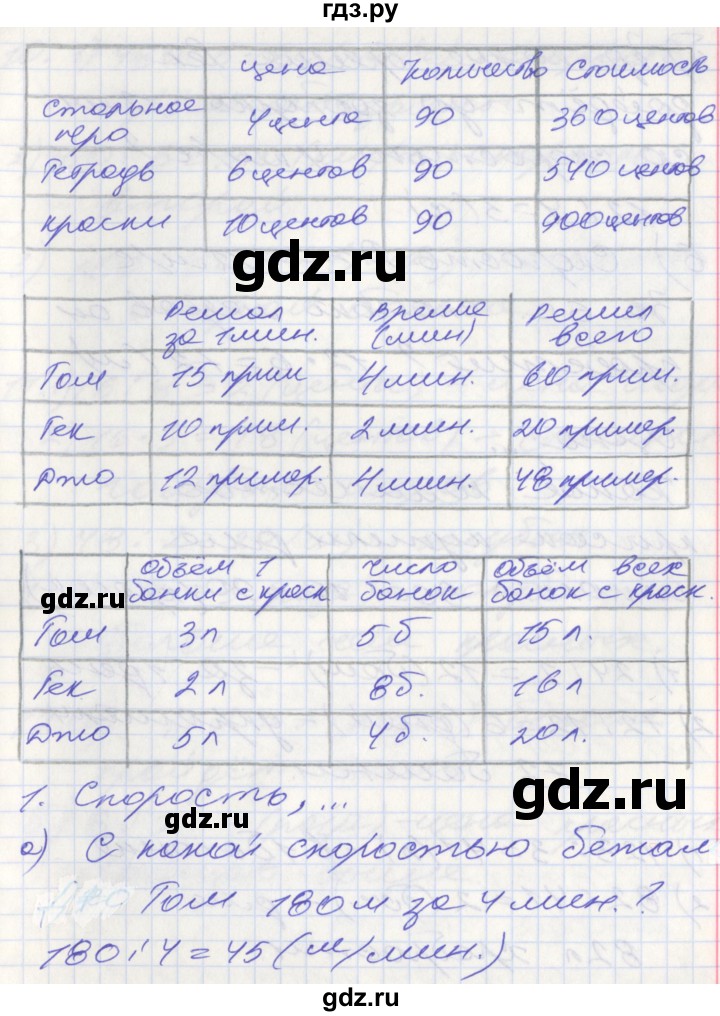 гдз.ру
цена количество стоимость
Стальное перо 4 цента 90 360 центов
Тетрадь 6 центов 90 540 центов
краски 10 центов 90 900 центов
gdz.ru
Решал за 1 мин. Время (мин) Решил всего
Том 15 прим 4 мин. 60 прим.
Гек 10 прим. 2 мин. 20 пример
Джо 12 пример. 4 мин. 48 пример.
Объём 1 банки с краск Число банок Объём всех банок с краск.
gdz.ru
Том 3л 5б 15 л.
Гек 2л 8б. 16 л
Джо 5л 4б. 20 л.
gdz.ru
1. Скорость, ...
gdz.ru
а) С какой скоростью бежал
Том 180 м за 4 мин.?
180:4=45 (м/мин.)
gdz.ru